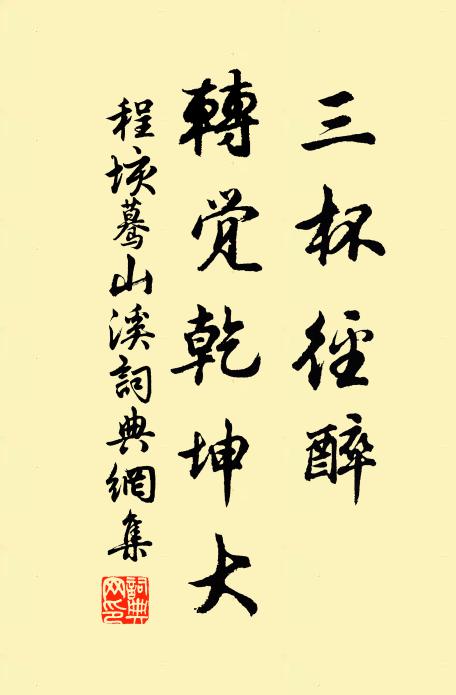 三杯徑醉
轉覺乾坤大
程垓驀山溪詞典網集
詞典網印